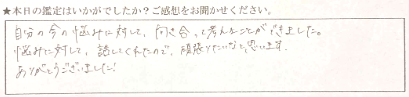 ★本日の鑑定はいかがでしたか？ご感想をお聞かせください。
自分の今の悩みに対して、向き合って考えることができました。
悩みに対して、話してくれたので、頑張りたいなと思います。
ありがとうございました!